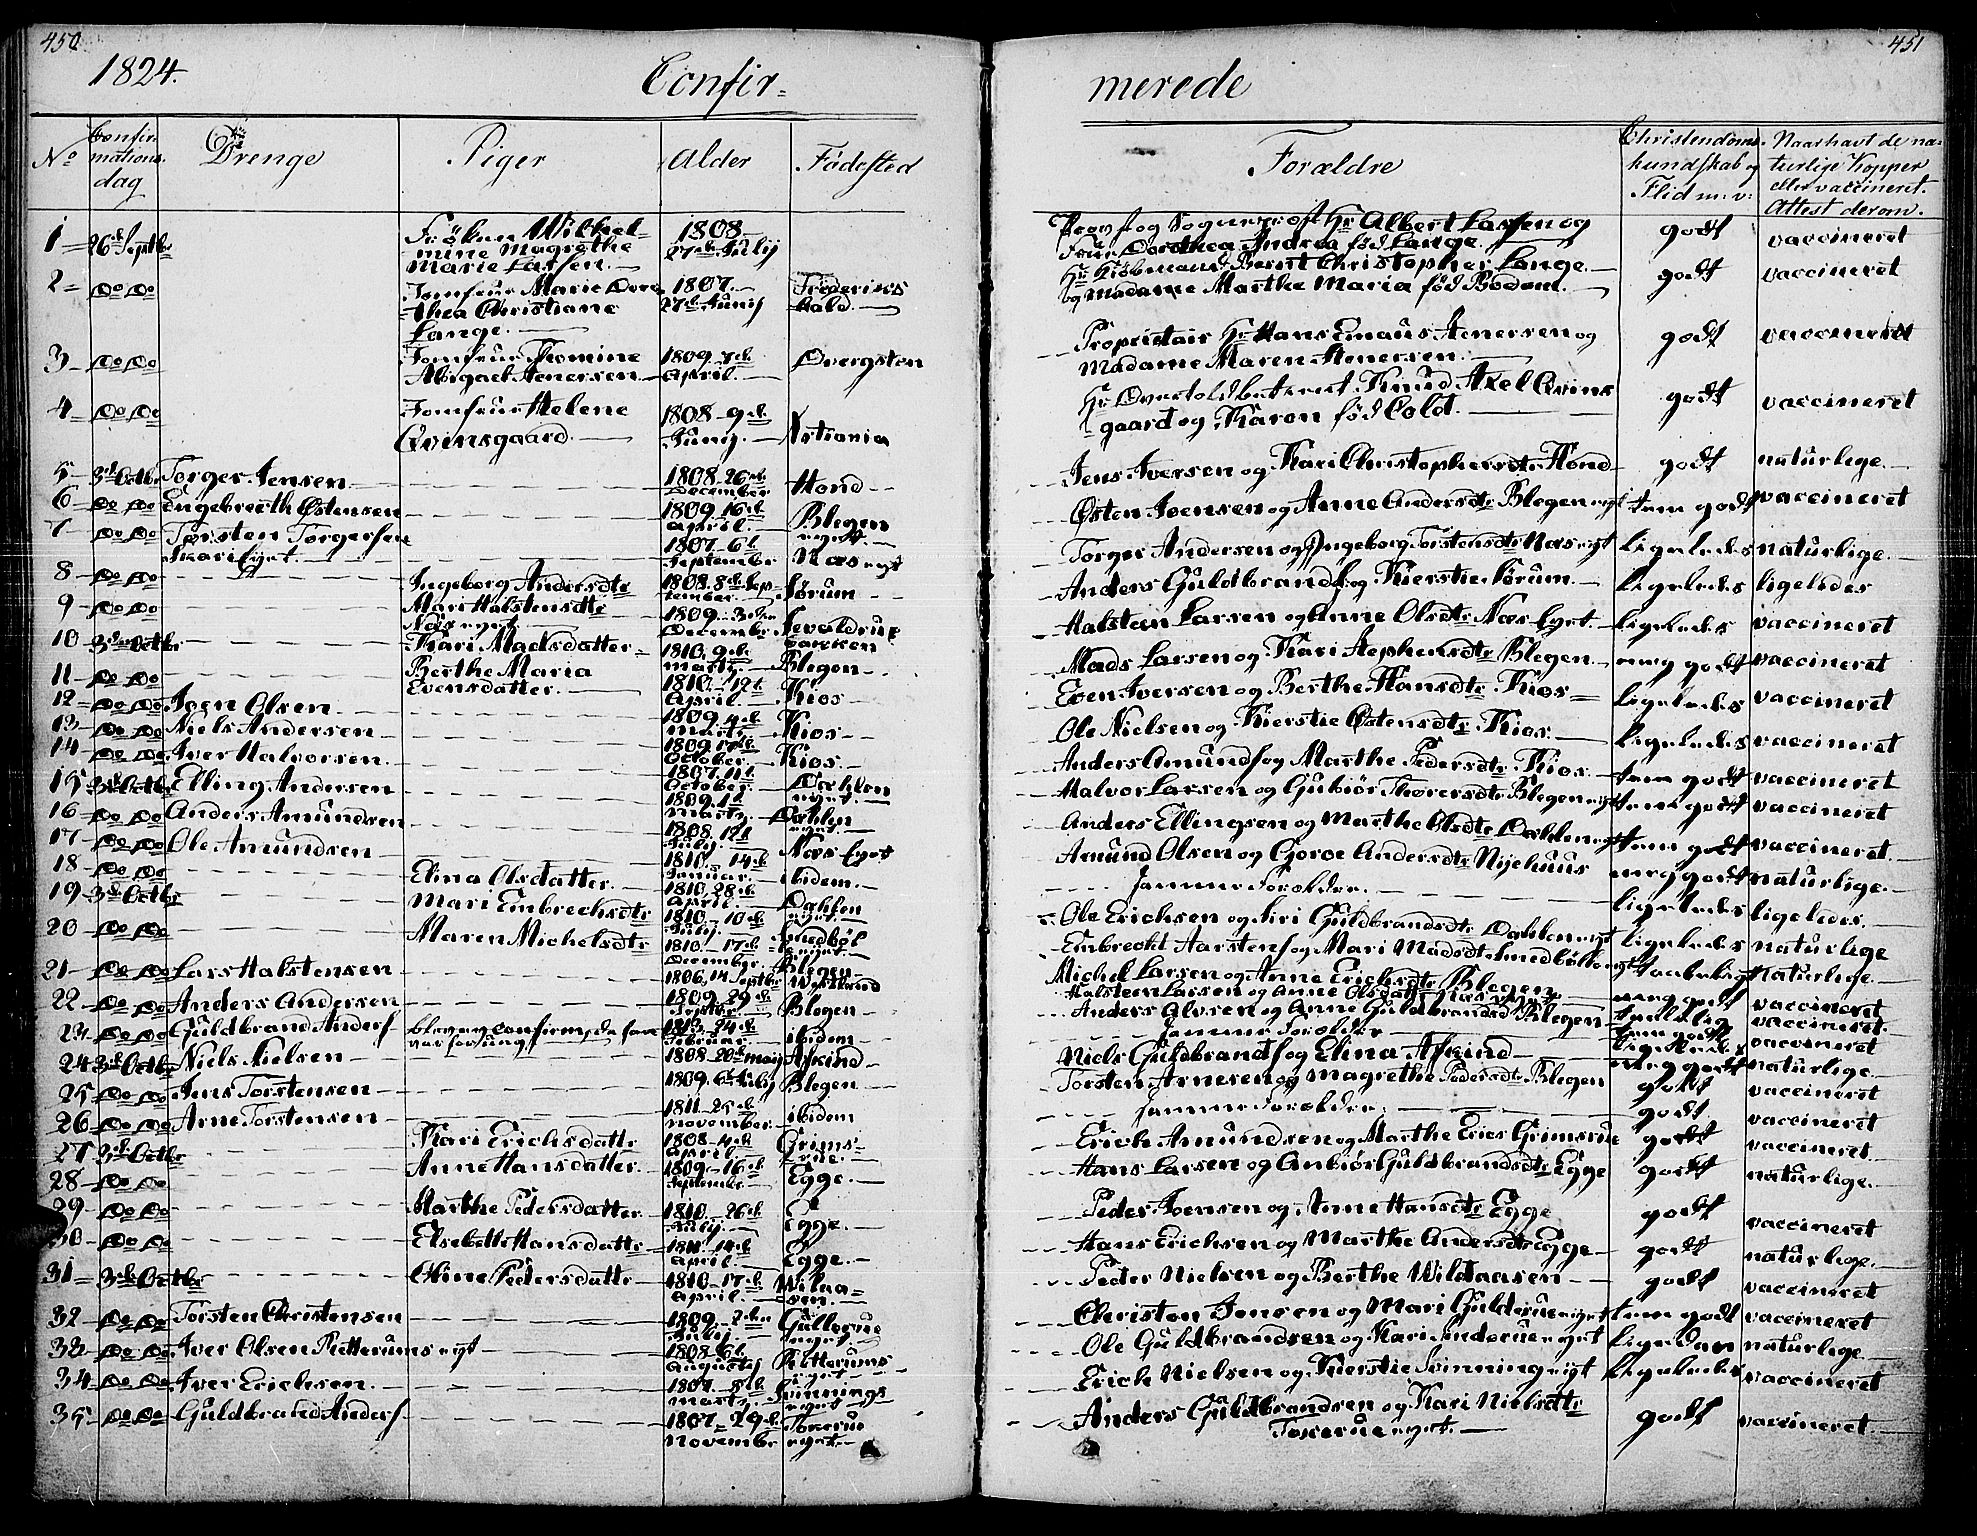 450
1824.
Confir-
No
Confir-
mations.
dag
Drenge
Piger
Alder
Födested
1
26de Septbr
Fröken Wilhel-
mine Magrethe
Marie Lassen.
1808
27de July
2
Do Do
Jomfrue Marie Doro-
thea Christiane
Lange.
1807.
27de Junij
Frederiks
hald.
3
Do Do
Jomfrue Thomine
Abigael Stenersen
1809 7de
April.
Dvergsten
4
Do Do
Jomfrue Helene
Qvinsgaard.
1808 9de
Junij.
5
3de Octbr
Torger Jensen
1808 26de
December
Hond
6
Do Do
Engebreeth Östensen
1809 16de
April.
Blegen
7
Do Do
Torsten Torgersen
eyet.
1807 6te
September
Næs eyet
8
Do Do
Ingeborg Andersdtr
1808. 8de Sep-
tember.
Sörum
9
Do Do
Mari Halstensdtr
Næs eyet.
1809
December
10
3de Octbr
Kari Madsdatter
1810. 9de
Marty
Blegen
11
Do Do
Berthe Maria
Evensdatter.
1810. 19de
April
Kios
12
Do Do
Joen Olsen
1809. 4de
Marty
Kios
13
Do Do
Niels Andersen
1809 17de
October
Kios.
14
Do Do
Iver Halvorsen.
1807. 11te
October.
eyet.
15
3de Octbr
Elling Andersen
1809. 1te
Marty
Dæhlen
eyet.
16
Do Do
Anders Amundsen
1808.
July.
Næs Eyet
17
Do Do
Ole Amundsen
1810. 14de
Januar.
ibidem.
18
Do Do
Elina Olsdatter.
1810. 28de
April.
Dæhlen
eyet.
19
3de Octbr
Mari Embrechsdtr
1810 10de
July.
Smedböl
eyet.
20
Do Do
Maren Michelsdtr
1810. 17de
December
Blegen
21
Do Do
Lars Halstensen
1806. 14 Septbr
22
Do Do
Anders Andersen
1809. 29de
Septbr.
Blegen
23
Do Do
Guldbrand Anders
1813. 24de
Februar.
ibidem
24
3de Octbr
Niels Nielsen
1808. 20de May
Askind
25
Do Do
Jens Torstensen
1809. 6te July
Blegen
26
Do Do
Arne Torstensen
1811. 25de
November
ibidem
27
3de Octbr
Kari Erichsdattr
1808. 4de
April
Grims-
rue.
28
Do Do
Anne Hansdatter
1809. 16de
September
Egge.
29
Do Do
Marthe Pedersdatter
1810. 26de
July.
Egge
30
Do Do
Elsebeth Hansdattr
1811. 14de
April
Egge.
31
3de Octbr
Eline Pedersdattr
1810. 17de
April.
Wilda-
sen.
32
Do Do
Torsten Christensen
1809. 2den
July.
Gullerue
eyet
33
Do Do
Iver Olsen Putterums eyet
1808 6te
Augusty
Putterums-
eyet
34
Do Do
Iver Erichsen.
1807. 8de
Marty.
Svinnings
eyet
35
Do Do
Guldbrand Anders
1807. 29de
November
Toserue
eyet.
451
merede
Forældre
Christendoms-
kundskab og
Flid m: v:
Naar havt de na-
turlige Kopper
eller vaccineret.
Attest derom.
Provst og Sogneprest Hr Albert Lassen og
Frue Dorothea Andrea föd Lange.
godt
vaccineret
Hr Kiöbmand Bernt Christopher Lange
og Madame Marthe Maria föd Bodom.
godt
vaccineret
Proprietair Hr Hans Emaus Stenersen og
Madame Maren Stenersen.
godt
vaccineret
Knud Axel Qvins
gaard og Karen föd Cold.
godt
vaccineret
Jens Iversen og Kari Christophersdtr Hond
godt
naturlige.
Östen Joensen og Anne Andersdtr Blegen eyet
tem godt
vaccineret
Torger Andersen og Ingeborg Torstensdtr Næs eyet
ligeledes
naturlige.
Anders Guldbrands og Kierstie Sörum.
ligeledes
ligeledes
Halsten Larsen og Anne Olsdtr Næs Eyet
ligeledes
vaccineret
Mads Larsen og Kari Stephensdtr Blegen.
meg godt
vaccineret
Even Iversen og Berthe Hansdtr Kios
ligeledes
vaccineret
Ole Nielsen og Kierstie Östensdtr Kios
ligeledes
vaccineret
Anders Amunds og Marthe Pedersdtr Kios
tem godt
vaccineret
Halvor Larsen og Gubiör Thorersdtr Blegen eyet
tem godt
vaccineret
Anders Ellingsen og Marthe Olsdtr Dæhlen eyet
tem godt
vaccineret.
Amund Olsen og Goroe Andersdtr Nyehuus
meg godt
naturlige.
Samme Forældre.
ligeledes
ligeledes.
Ole Erichsen og Siri Guldbrandsdtr Dæhlen eyet
ligeledes
naturlige
Embrecht Aarstens og Mari Madsdtr Smedböls eyet
naturlige.
Michel Larsen og Anne Erichsdtr Blegen
meg godt
vaccineret
Halsteen Larsen og Anne Olsdattr Næs eyet
vaccineret.
Anders Olsen og Anne Guldbrandsd Blegen
tem godt
vaccineret
Samme Forældre
ligeledes
Niels Guldbrands og Elina Askind
meg godt
naturlige.
Torsten Arnesen og Magrethe Pedersdtr Blegen
godt
vaccineret
Samme Forældre.
godt
vaccineret
Erich Amundsen og Marthe Erics Grimsrue
godt
vaccineret.
Hans Larsen og Anbiör Guldbrandsdtr Egge
godt
naturlige.
Peder Joensen og Anne Hansdtr Egge
godt
vaccineret
Hans Erichsen og Marthe Andersdtr Egge
godt
naturlige.
Peder Nielsen og Berthe Wildaasen
godt
vaccineret
Christen Jensen og Mari Gulderue eyet
tem godt
vaccineret
Ole Guldbrandsen og Kari eyet
ligedan
naturlige.
Erich Nielsen og Kierstie Svinning eyet
ligeledes
vaccineret
Anders Guldbrandsen og Kari Nielsdtr
Toserue eyet.
godt
vaccineret.